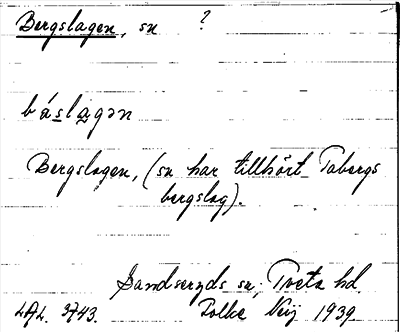 Bergslagen, sn ?
básla̲gən
Bergslagen, (sn har tillhört Tabergs
bergslag).
Sandseryds sn, Tveta hd.
LAL. 3743. Polke Nij 1939